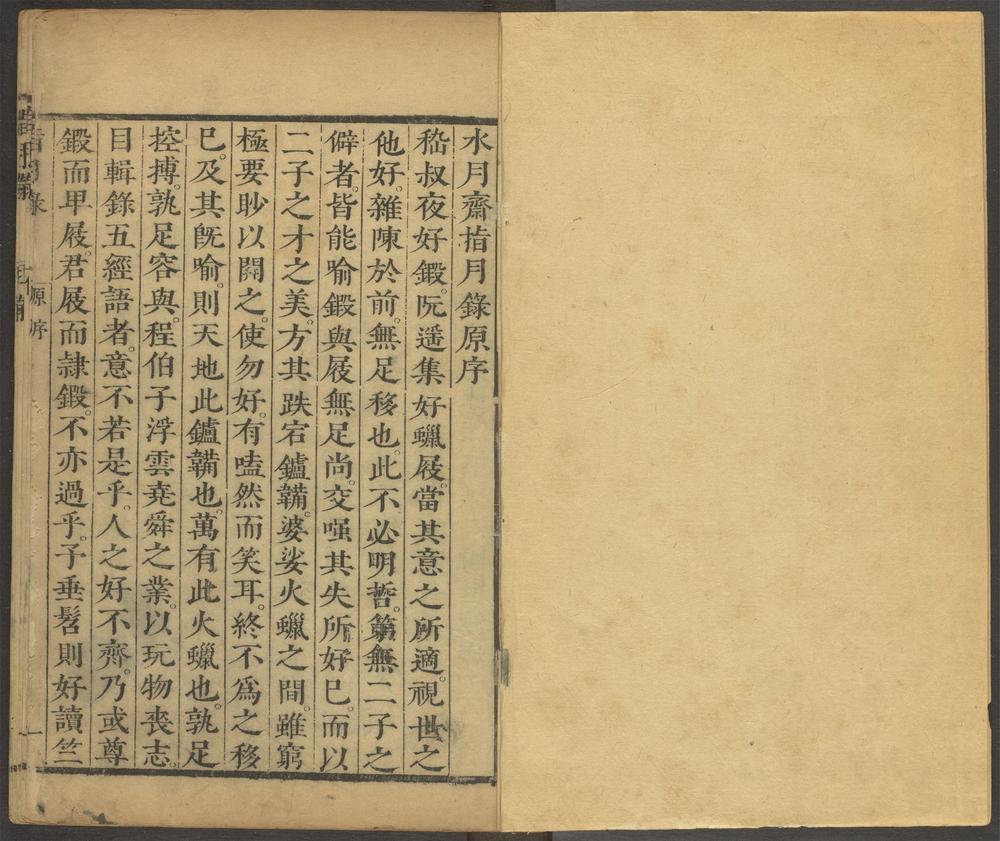 水月齋指月錄原序
嵇叔夜好鍛。阮遥集好蠟屐。當其意之所適。視世之
他好。雜陳於前。無足移也。此不必明哲。第無二子之
僻者。皆能喻鍛與屐無足尚。交嗤其失所好巳。而以
二子之才之美。方其跌宕鑪鞴。婆娑火蠟之間。雖窮
極要眇以閼之。使勿好。有嗑然而笑耳。終不爲之移
巳。及其旣喻。則天地此鑪鞴也。萬有此火蠟也。孰足
控搏。孰足容與。程伯子浮雲堯舜之業。以玩物喪志。
目輯錄五經語者。意不若是乎。人之好不齊。乃或尊
鍛而卑屐。君屐而隷鍛。不亦過乎。予垂髫則好讀竺
原序
一